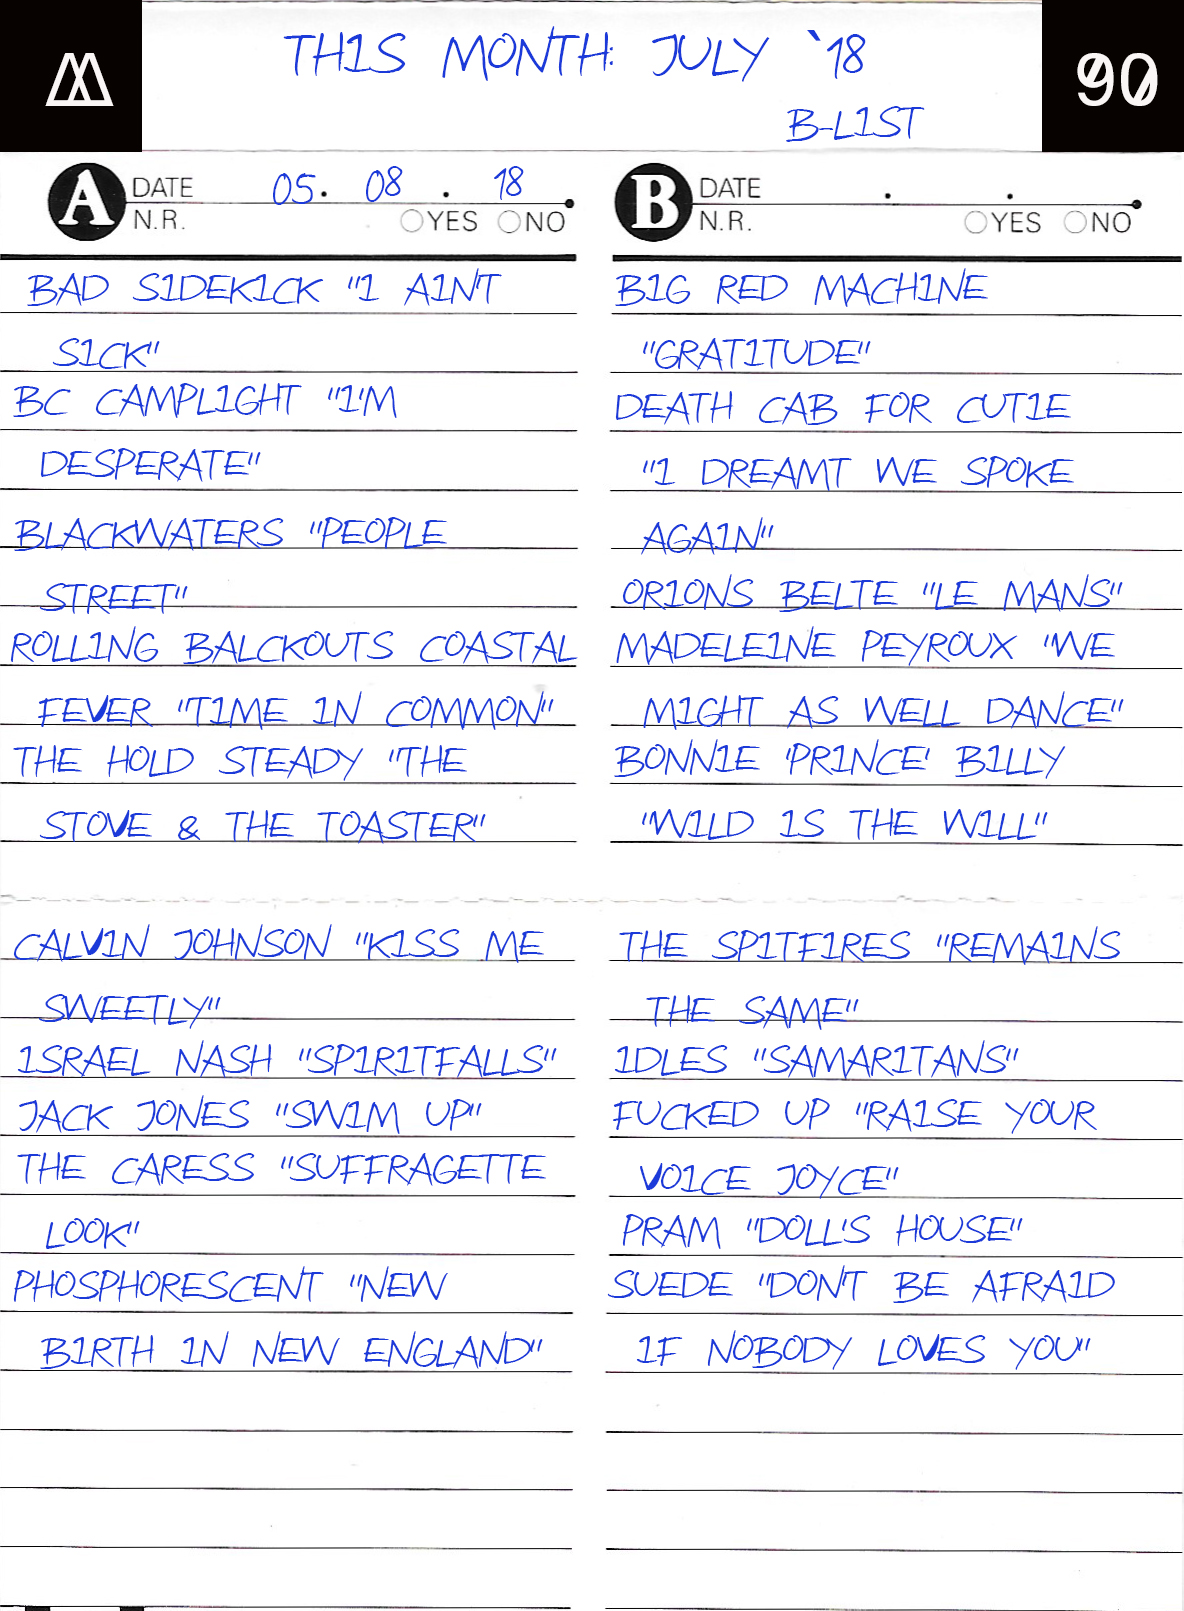 THIS MONTH: JULY `18
B-LIST
M
90
A DATE 05. 08 . 18
N.R. YES NO
BAD SIDEKICK "I AIN'T
SICK"
BC CAMPLIGHT "I'M
DESPERATE"
BLACKWATERS "PEOPLE
STREET"
ROLLING BALCKOUTS COASTAL
FEVER "TIME IN COMMON"
THE HOLD STEADY "THE
STOVE & THE TOASTER"
CALVIN JOHNSON "KISS ME
SWEETLY"
ISRAEL NASH "SPIRITFALLS"
JACK JONES "SWIM UP"
THE CARESS "SUFFRAGETTE
LOOK"
PHOSPHORESCENT "NEW
BIRTH IN NEW ENGLAND"
B DATE . .
N.R. YES NO
BIG RED MACHINE
"GRATITUDE"
DEATH CAB FOR CUTIE
"I DREAMT WE SPOKE
AGAIN"
ORIONS BELTE "LE MANS"
MADELEINE PEYROUX "WE
MIGHT AS WELL DANCE"
BONNIE 'PRINCE' BILLY
"WILD IS THE WILL"
THE SPITFIRES "REMAINS
THE SAME"
IDLES "SAMARITANS"
FUCKED UP "RAISE YOUR
VOICE JOYCE"
PRAM "DOLL'S HOUSE"
SUEDE "DON'T BE AFRAID
IF NOBODY LOVES YOU"